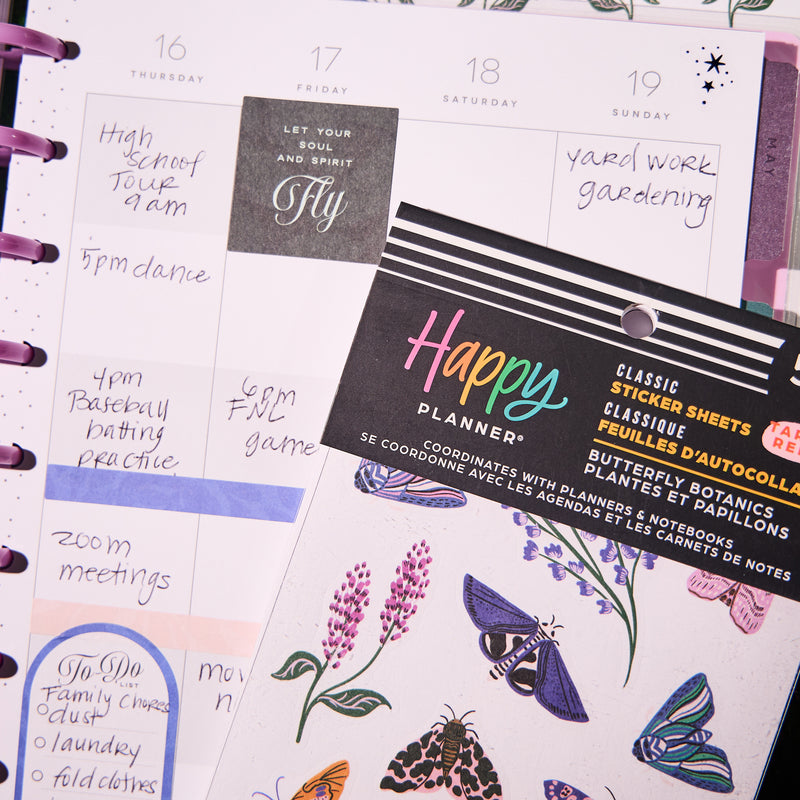 16
THURSDAY
17
FRIDAY
18
SATURDAY
19
SUNDAY
MAY
High
School
Tour
9am
5pm dance
4pm
Baseball
batting
practice
zoom
meetings
To Do
LIST
Family Chores
dust
laundry
fold clothes
LET YOUR
SOUL
AND SPIRIT
Fly
6pm
FNL
game
n
yard work
gardening
Happy
PLANNER®
CLASSIC
STICKER SHEETS
CLASSIQUE
FEUILLES D'AUTOCOLLA
BUTTERFLY BOTANICS
PLANTES ET PAPILLONS
COORDINATES WITH PLANNERS & NOTEBOOKS
SE COORDONNE AVEC LES AGENDAS ET LES CARNETS DE NOTES